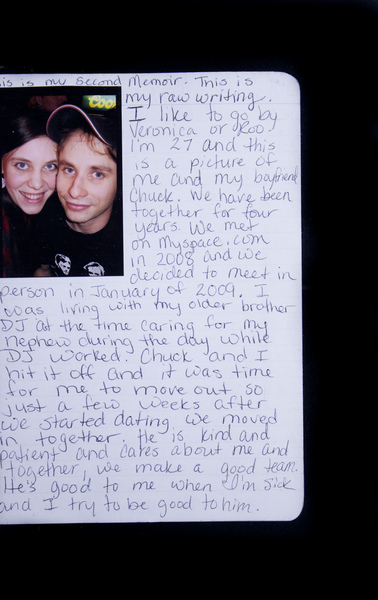 is is my second Memoir. This is
my raw writing.
I like to go by
Veronica or Roo.
I'm 27 and this
is a picture of
me and my boyfriend
Chuck. We have been
together for four
years. We met
on Myspace.com
in 2008 and we
decided to meet in
person in January of 2009. I
was living with my older brother
DJ at the time caring for my
nephew during the day while
DJ worked. Chuck and I
hit it off and it was time
for me to move out so
just a few weeks after
we started dating we moved
in together. He is kind and
patient and cares about me and
together, we make a good team.
He's good to me when I'm sick
and I try to be good to him.